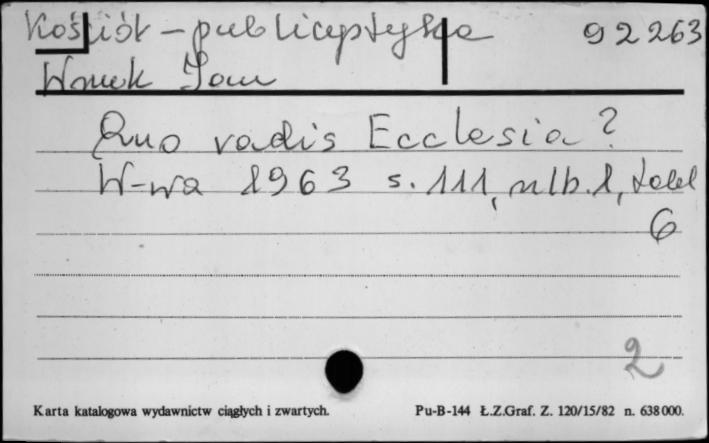 Kościół - publicystyka 92263
Wnuk Jan
Quo vadis Ecclesia?
W-wa 1963 s. 111, nlb. 1, tabl
6
2
Karta katalogowa wydawnictw ciągłych i zwartych. Pu-B-144 Ł.Z.Graf. Z. 120/15/82 n. 638000.